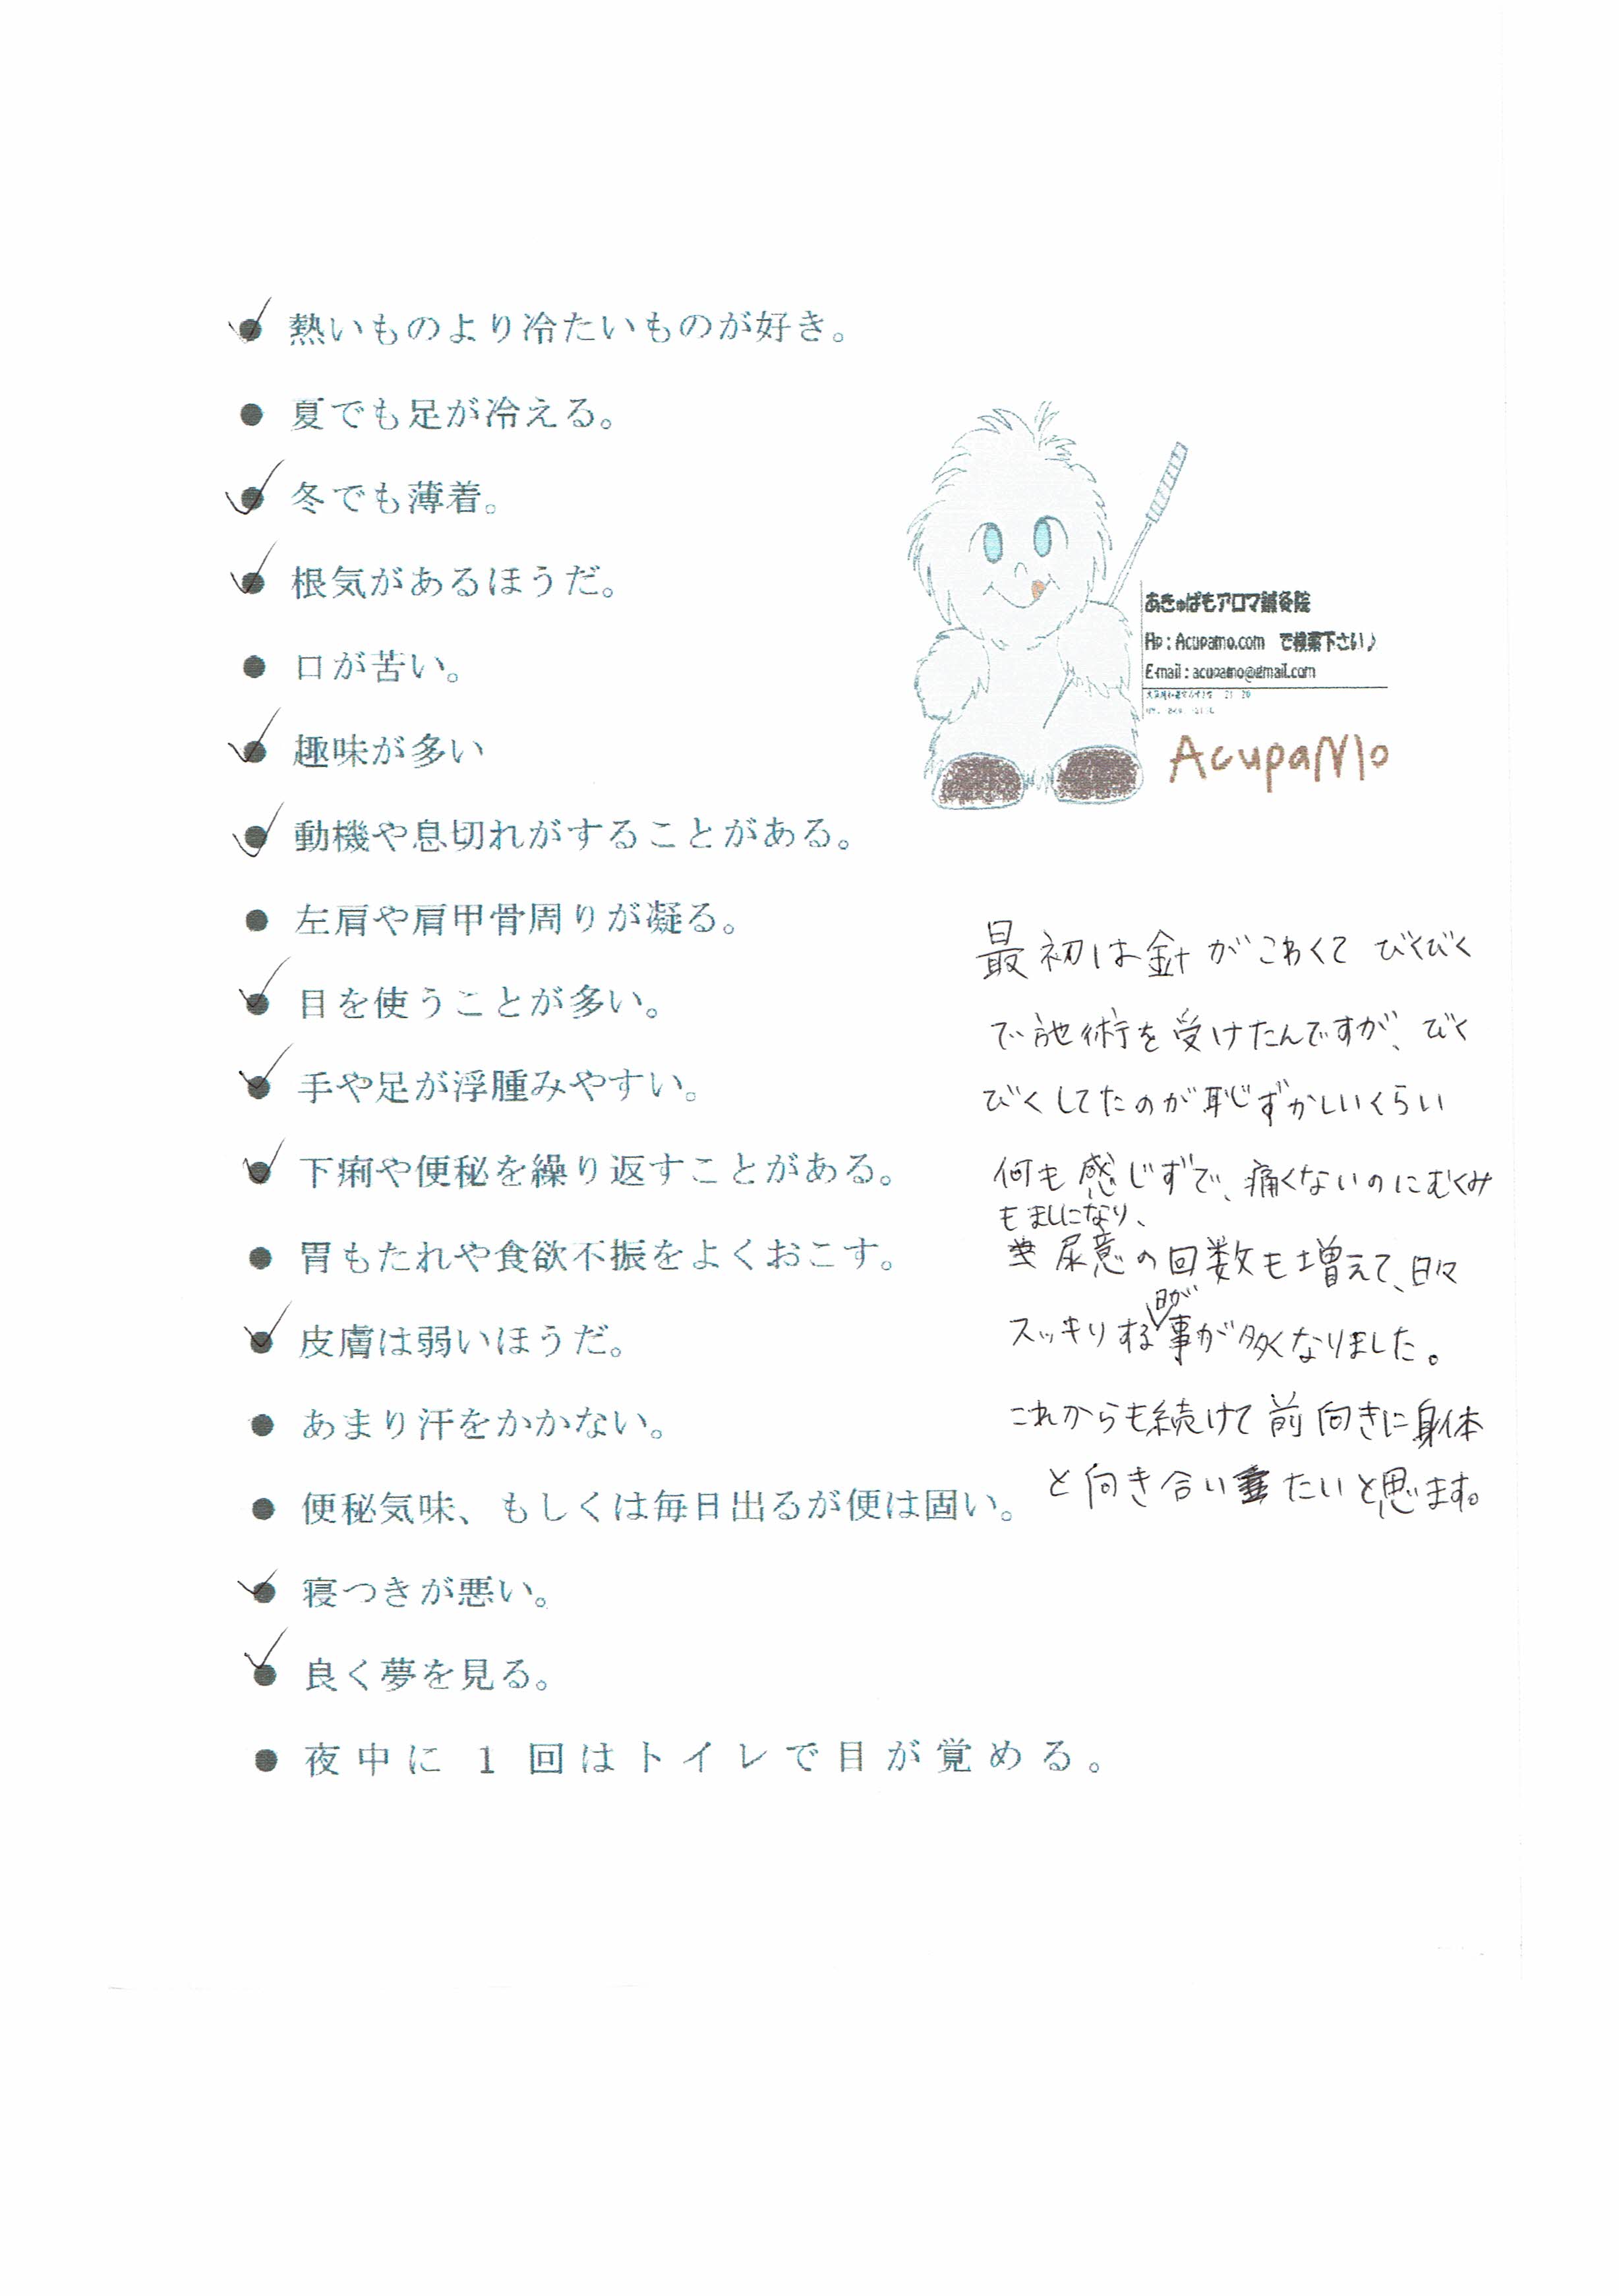 熱いものより冷たいものが好き。
夏でも足が冷える。
冬でも薄着。
根気があるほうだ。
口が苦い。
趣味が多い
動機や息切れがすることがある。
左肩や肩甲骨周りが凝る。
目を使うことが多い。
手や足が浮腫みやすい。
下痢や便秘を繰り返すことがある。
胃もたれや食欲不振をよくおこす。
皮膚は弱いほうだ。
あまり汗をかかない。
便秘気味、もしくは毎日出るが便は固い。
寝つきが悪い。
良く夢を見る。
夜中に 1 回はトイレで目が覚める。
あきゅぱもアロマ鍼灸院
Hp : Acupamo.com で検索下さい♪
E-mail : acupamo@gmail.com
AcupaMo
最初は針がこわくて びくびく
で施術を受けたんですが、びく
びくしてたのが恥じずかしいくらい
何も感じずで、痛くないのにむくみ
もましになり、
尿意の回数も増えて、日々
スッキリする日が事が多くなりました。
これからも続けて前向きに身体
と向き合いたいと思います。